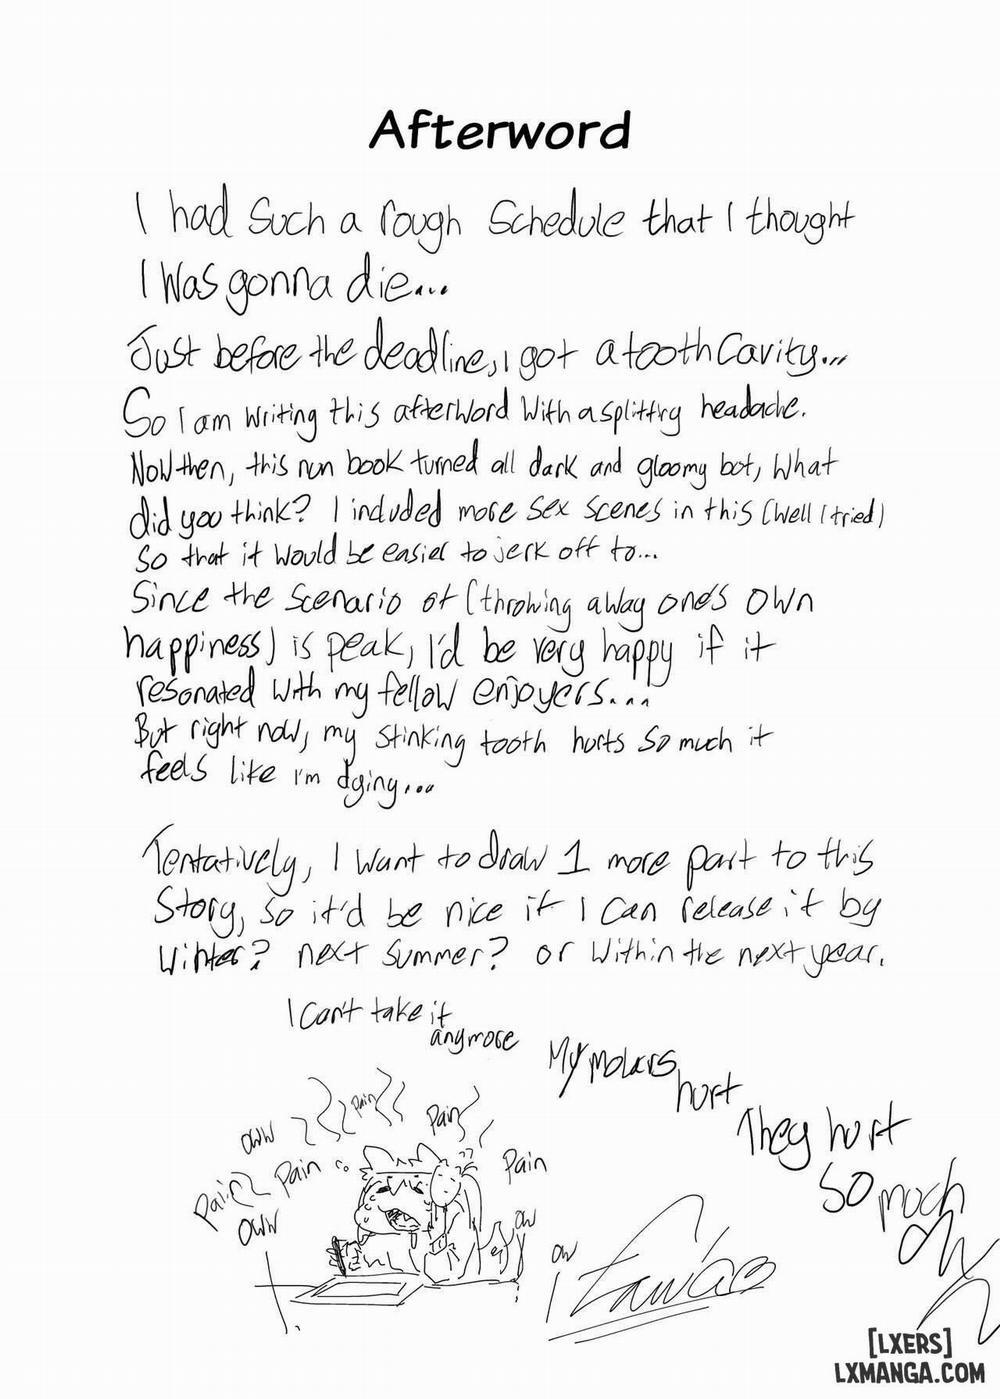 Afterword
I had Such a rough Schedule that I thought
I Was gonna die...
Just before the deadline, I got a tooth Cavity...
So I am writing this afterword with a splitting headache.
Now then, this nun book turned all dark and gloomy but, What
did you think? I included more sex scenes in this (well I tried)
so that it would be easier to jerk off to...
Since the scenario of (throwing away one's own
happiness) is peak, I'd be very happy if it
resonated with my fellow enjoyers...
But right now, my stinking tooth hurts so much it
feels like I'm dying...
Tentatively, I want to draw 1 more part to this
Story, so it'd be nice if I can release it by
winter? next summer? or within the next year.
I can't take it
anymore
My molars
hurt
They hurt
so much
Ow
Pain
Pain
Oww
Pain
Pain
Pain
Oww
ow
ow
[LXERS]
LXMANGA.COM